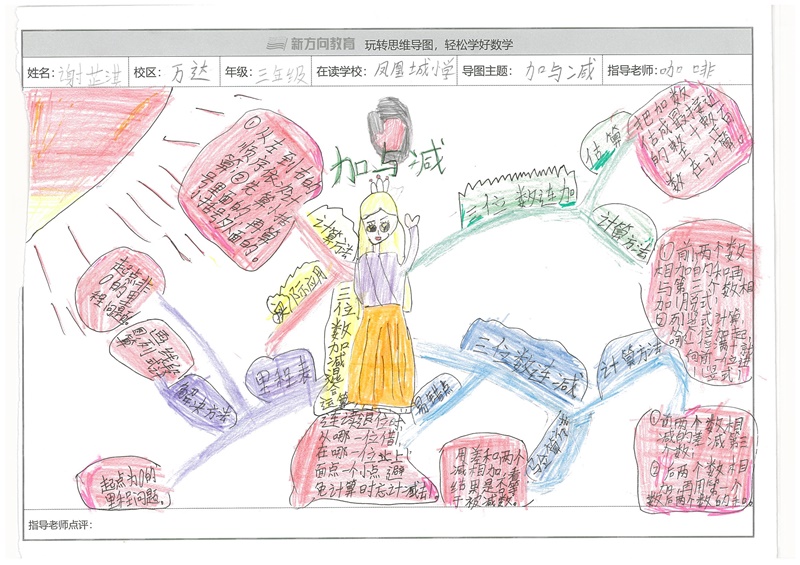 新方向教育 玩转思维导图，轻松学好数学
姓名：谢芷淇 校区：万达 年级：三年级 在读学校：凤凰城小学 导图主题：加与减 指导老师：咖啡
加与减
①从左到右的
顺序依次计
算②先算小括
号里面的再算
小括号外面的。
计算方法
实际应用
三位数加减混合运算
三位数连加
估算
把加数
估成最接近
的整十整百
数在计算。
计算方法
①前两个数
相加的和再
与第三个数相
加
②列竖式计算，
三位数连减
计算方法
①前两个数相
减的差减第三
个数。
②后两个数相
加，再用第一个
数
易错点
连续退位时
从哪一位借1
在哪一位上
面点一个小点，避
免计算时忘记减去1。
用差和两个
减数相加，看
结果是否等
于被减数。
里程表
解决方法
起点非
0的里
程问题
再列
起点为0的
里程问题。
指导老师点评：